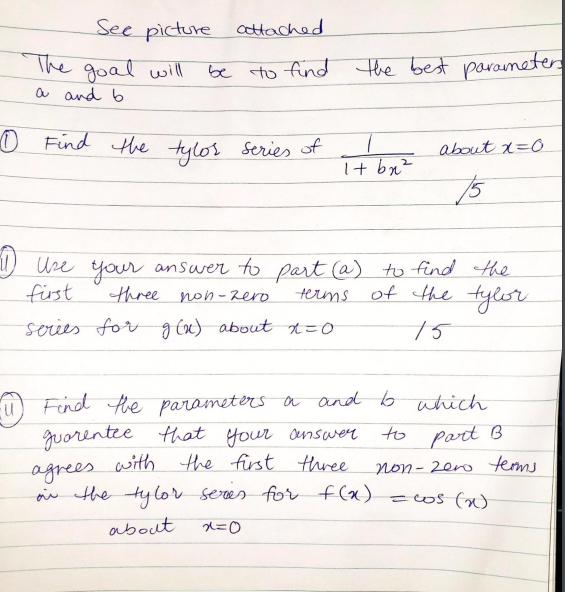 See picture attached
The goal will be to find the best parameters
a and b
① Find the tylor series of 1/(1+bx²) about x=0
/5
(ii) Use your answer to part (a) to find the
first three non-zero terms of the tylor
series for g(x) about x=0 /5
(ii) Find the parameters a and b which
guarentee that your answer to part B
agrees with the first three non-zero terms
in the tylor series for f(x) = cos (x)
about x=0